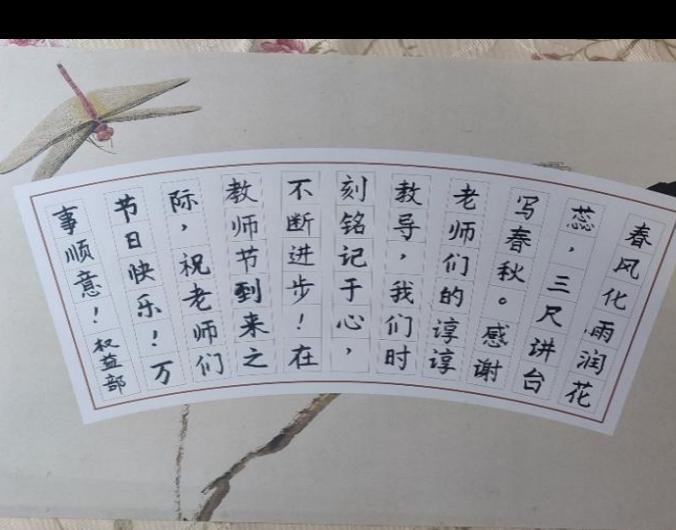 春风化雨润花
蕊，三尺讲台
写春秋。感谢
老师们的谆谆
教导，我们时
刻铭记于心，
不断进步！在
教师节到来之
际，祝老师们
节日快乐！万
事顺意！权益部